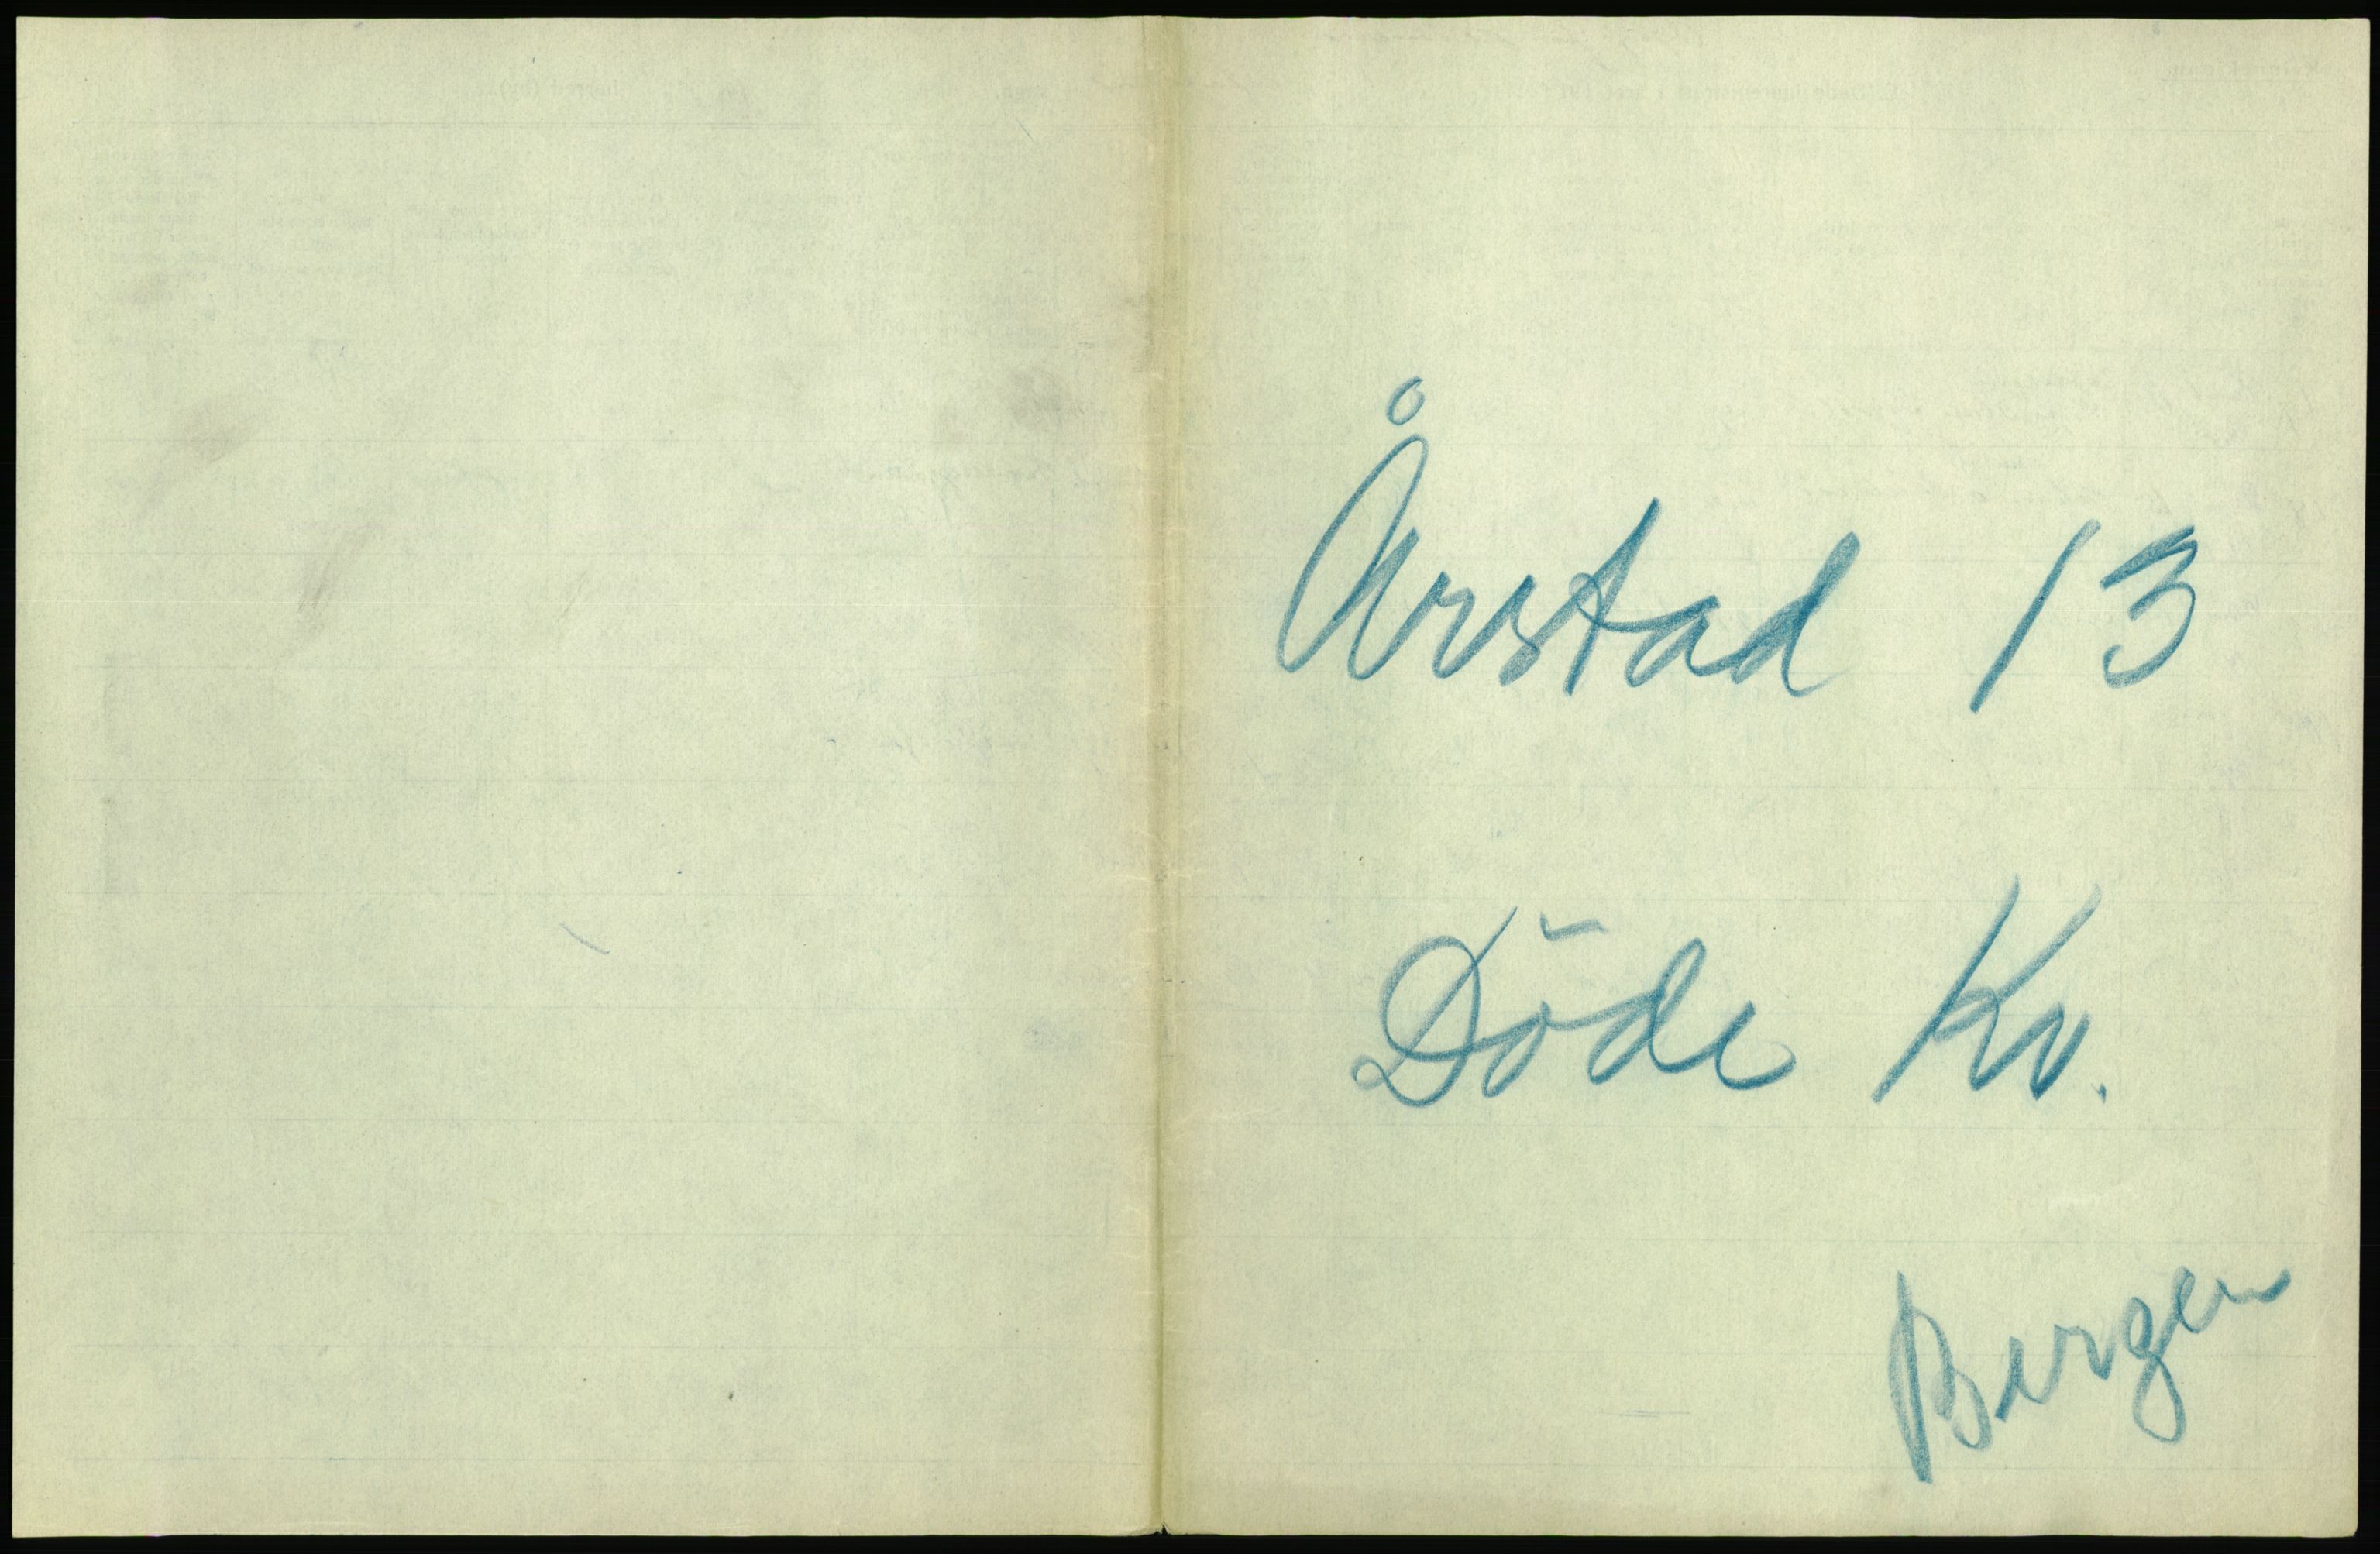 Årstad 13
Döde Kv.
Bergen